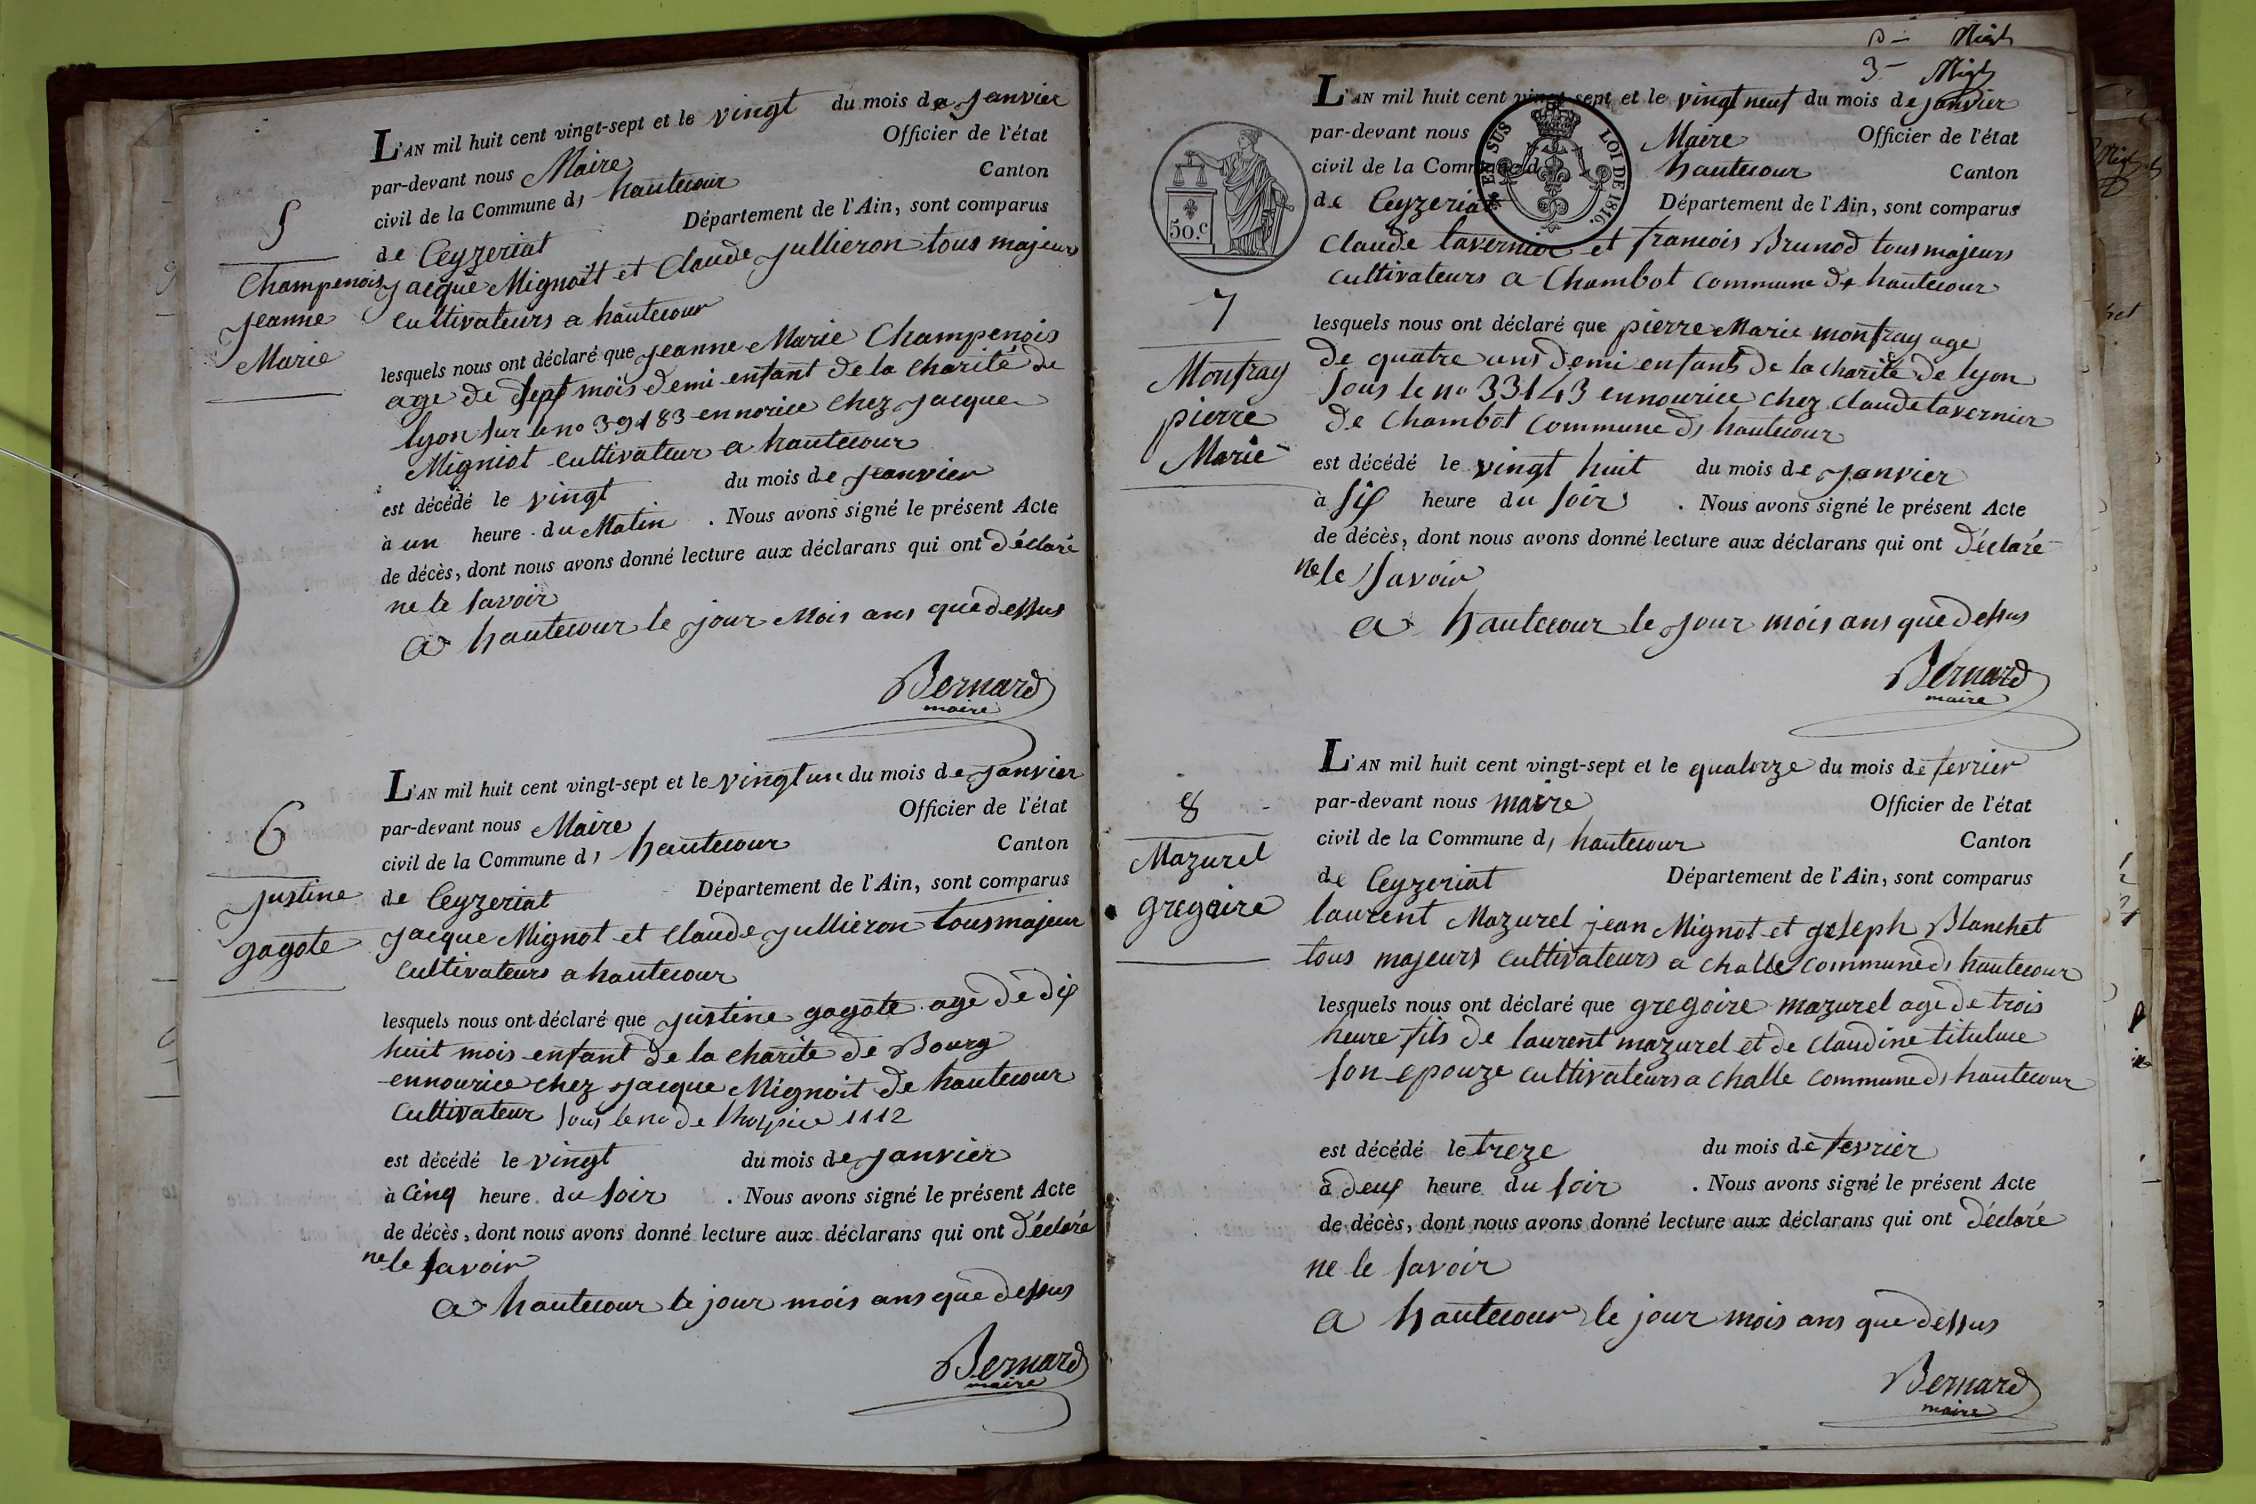 5
Champenois
Jeanne
Marie
L'AN mil huit cent vingt-sept et le vingt du mois de Janvier
par-devant nous Maire Officier de l'état
civil de la Commune d, hautecour Canton
de Ceyzeriat Département de l'Ain, sont comparus
Jacque Mignoit et Claude Jullieron tous majeurs
cultivateurs a hautecour
lesquels nous ont déclaré que Jeanne Marie Champenois
age de Sept mois demi enfant de la charité de
lyon sur le no 39183 ennorice chez Jacque
Migniot cultivateur a hautecour
est décédé le vingt du mois de Jeanvier
à un heure du Matin . Nous avons signé le présent Acte
de décès, dont nous avons donné lecture aux déclarans qui ont déclaré
ne le savoir
a hautecour le jour Mois ans que dessus
Bernard
maire
6
Justine
gagote
L'AN mil huit cent vingt-sept et le vingt un du mois de Janvier
par-devant nous Maire Officier de l'état
civil de la Commune d, hautecour Canton
de Ceyzeriat Département de l'Ain, sont comparus
Jacque Mignot et Claude Jullieron tous majeur
cultivateurs a hautecour
lesquels nous ont déclaré que Justine gagote age de dix
huit mois enfant de la charite de Bourg
ennourice chez Jacque Mignoit de hautecour
cultivateur sous le no de lhospice 1112
est décédé le vingt du mois de Janvier
à Cinq heure du soir . Nous avons signé le présent Acte
de décès, dont nous avons donné lecture aux déclarans qui ont déclaré
ne le savoir
a hautecour le jour mois ans que dessus
Bernard
maire
3
50.c
EN SUS LOI DE 1816.
7
Monfray
pierre
Marie
L'AN mil huit cent vingt-sept et le vingt neuf du mois de Janvier
par-devant nous Maire Officier de l'état
civil de la Commune d hautecour Canton
de Ceyzeriat Département de l'Ain, sont comparus
Claude tavernier et francois Brunod tous majeurs
cultivateurs a Chambot commune de hautecour
lesquels nous ont déclaré que pierre Marie monfray age
de quatre ans demi enfant de la charité de lyon
sous le no 33143 ennourice chez claude tavernier
de Chambot commune d, hautecour
est décédé le vingt huit du mois de Janvier
à six heure du soir . Nous avons signé le présent Acte
de décès, dont nous avons donné lecture aux déclarans qui ont déclaré
ne le savoir
a hautecour le Jour mois ans que dessus
Bernard
maire
8
Mazurel
gregoire
L'AN mil huit cent vingt-sept et le quatorze du mois de fevrier
par-devant nous maire Officier de l'état
civil de la Commune d, hautecour Canton
de Ceyzeriat Département de l'Ain, sont comparus
laurent Mazurel jean Mignot et joseph Blanchet
tous majeurs cultivateurs a challe commune d, hautecour
lesquels nous ont déclaré que gregoire mazurel age de trois
heure fils de laurent mazurel et de claudine
son epouze cultivateurs a challe commune d, hautecour
est décédé le treze du mois de fevrier
à deux heure du soir . Nous avons signé le présent Acte
de décès, dont nous avons donné lecture aux déclarans qui ont déclaré
ne le savoir
a hautecour le jour mois ans que dessus
Bernard
maire